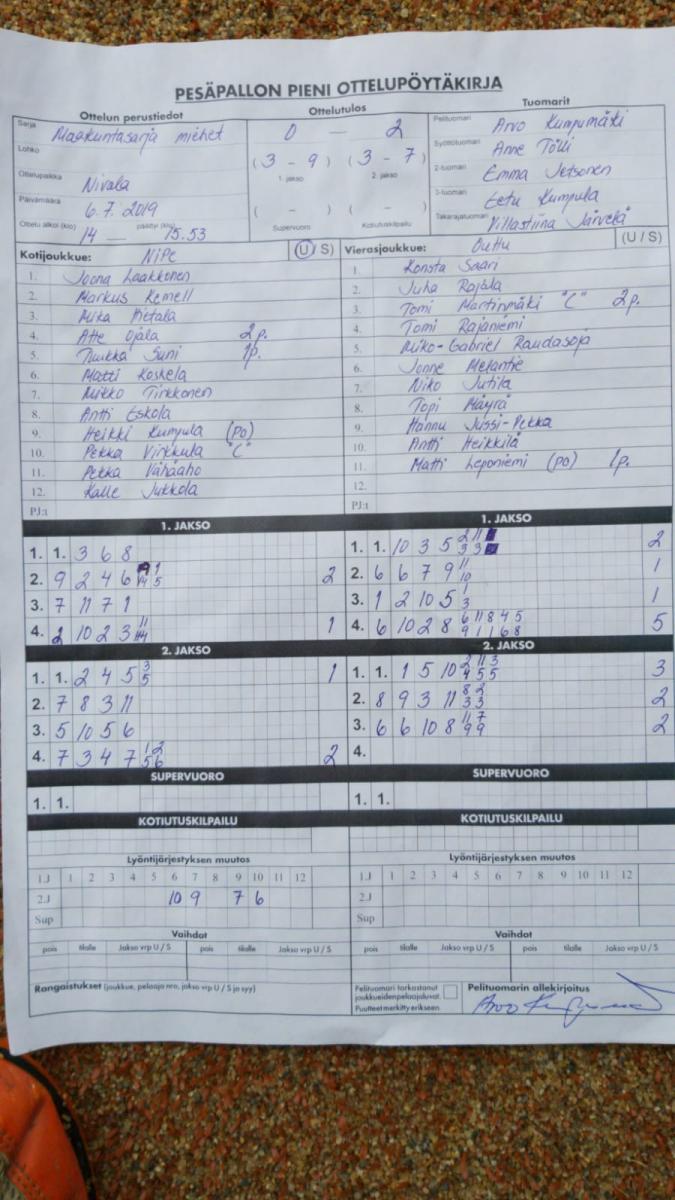 PESÄPALLON PIENI OTTELUPÖYTÄKIRJA
Ottelun perustiedot
Sarja Maakuntasarja miehet
Lohko
Ottelupaikka Nivala
Päivämäärä 6.7.2019
Ottelu alkoi (klo) 14 — päättyi (klo) 15.53
Ottelutulos
0 — 2
(3 - 9) (3 - 7)
1. jakso 2. jakso
( - ) ( - )
Supervuoro Kotiutuskilpailu
Tuomarit
Pelituomari Arvo Kumpumäki
Syöttötuomari Anne Tölli
2-tuomari Emma Jetsonen
3-tuomari Eetu Kumpula
Takarajatuomari Villastiina Järvelä
Kotijoukkue: NiPe (U / S)
1. Joona Laakkonen
2. Markus Kemell
3. Mika Hietala
4. Atte Ojala 2p.
5. Tuukka Suni 1p.
6. Matti Koskela
7. Mikko Tirkkonen
8. Antti Eskola
9. Heikki Kumpula (po)
10. Pekka Virkkula "C"
11. Pekka Vähäaho
12. Kalle Jukkola
PJ:t
Vierasjoukkue: OuHu (U / S)
1. Konsta Saari
2. Juha Rajala
3. Tomi Martinmäki "C" 2p.
4. Tomi Rajaniemi
5. Miko-Gabriel Raudasoja
6. Jonne
7. Niko Jutila
8. Topi Mäyrä
9. Hannu Jussi-Pekka
10. Antti Heikkilä
11. Matti Leponiemi (po) 1p.
12.
PJ:t
1. JAKSO
1. 1. 3 6 8
2. 9 2 4 6 2
3. 7 11 7 1
4. 2 10 2 3 1
2. JAKSO
1. 1. 2 4 5 3 5 1
2. 7 8 3 11
3. 5 10 5 6
4. 7 3 4 7 1 2 5 6 2
SUPERVUORO
1. 1.
1. JAKSO
1. 1. 10 3 5 2 11 3 3 2
2. 6 6 7 9 11 10 1
3. 1 2 10 5 1 3 1
4. 6 10 2 8 6 11 8 4 5 9 1 1 6 8 5
2. JAKSO
1. 1. 1 5 10 2 11 3 4 5 5 3
2. 8 9 3 11 8 2 3 3 2
3. 6 6 10 8 11 7 9 9 2
4.
SUPERVUORO
1. 1.
KOTIUTUSKILPAILU
Lyöntijärjestyksen muutos
1.J 1 2 3 4 5 6 7 8 9 10 11 12
2.J 10 9 7 6
Sup
Vaihdot
pois tilalle Jakso vrp U / S pois tilalle Jakso vrp U / S
KOTIUTUSKILPAILU
Lyöntijärjestyksen muutos
1.J 1 2 3 4 5 6 7 8 9 10 11 12
2.J
Sup
Vaihdot
pois tilalle Jakso vrp U / S pois tilalle Jakso vrp U / S
Rangaistukset (joukkue, pelaaja nro, jakso vrp U / S ja syy)
Pelituomari tarkastanut
joukkueiden pelaajaluvat.
Puutteet merkitty erikseen.
Pelituomarin allekirjoitus